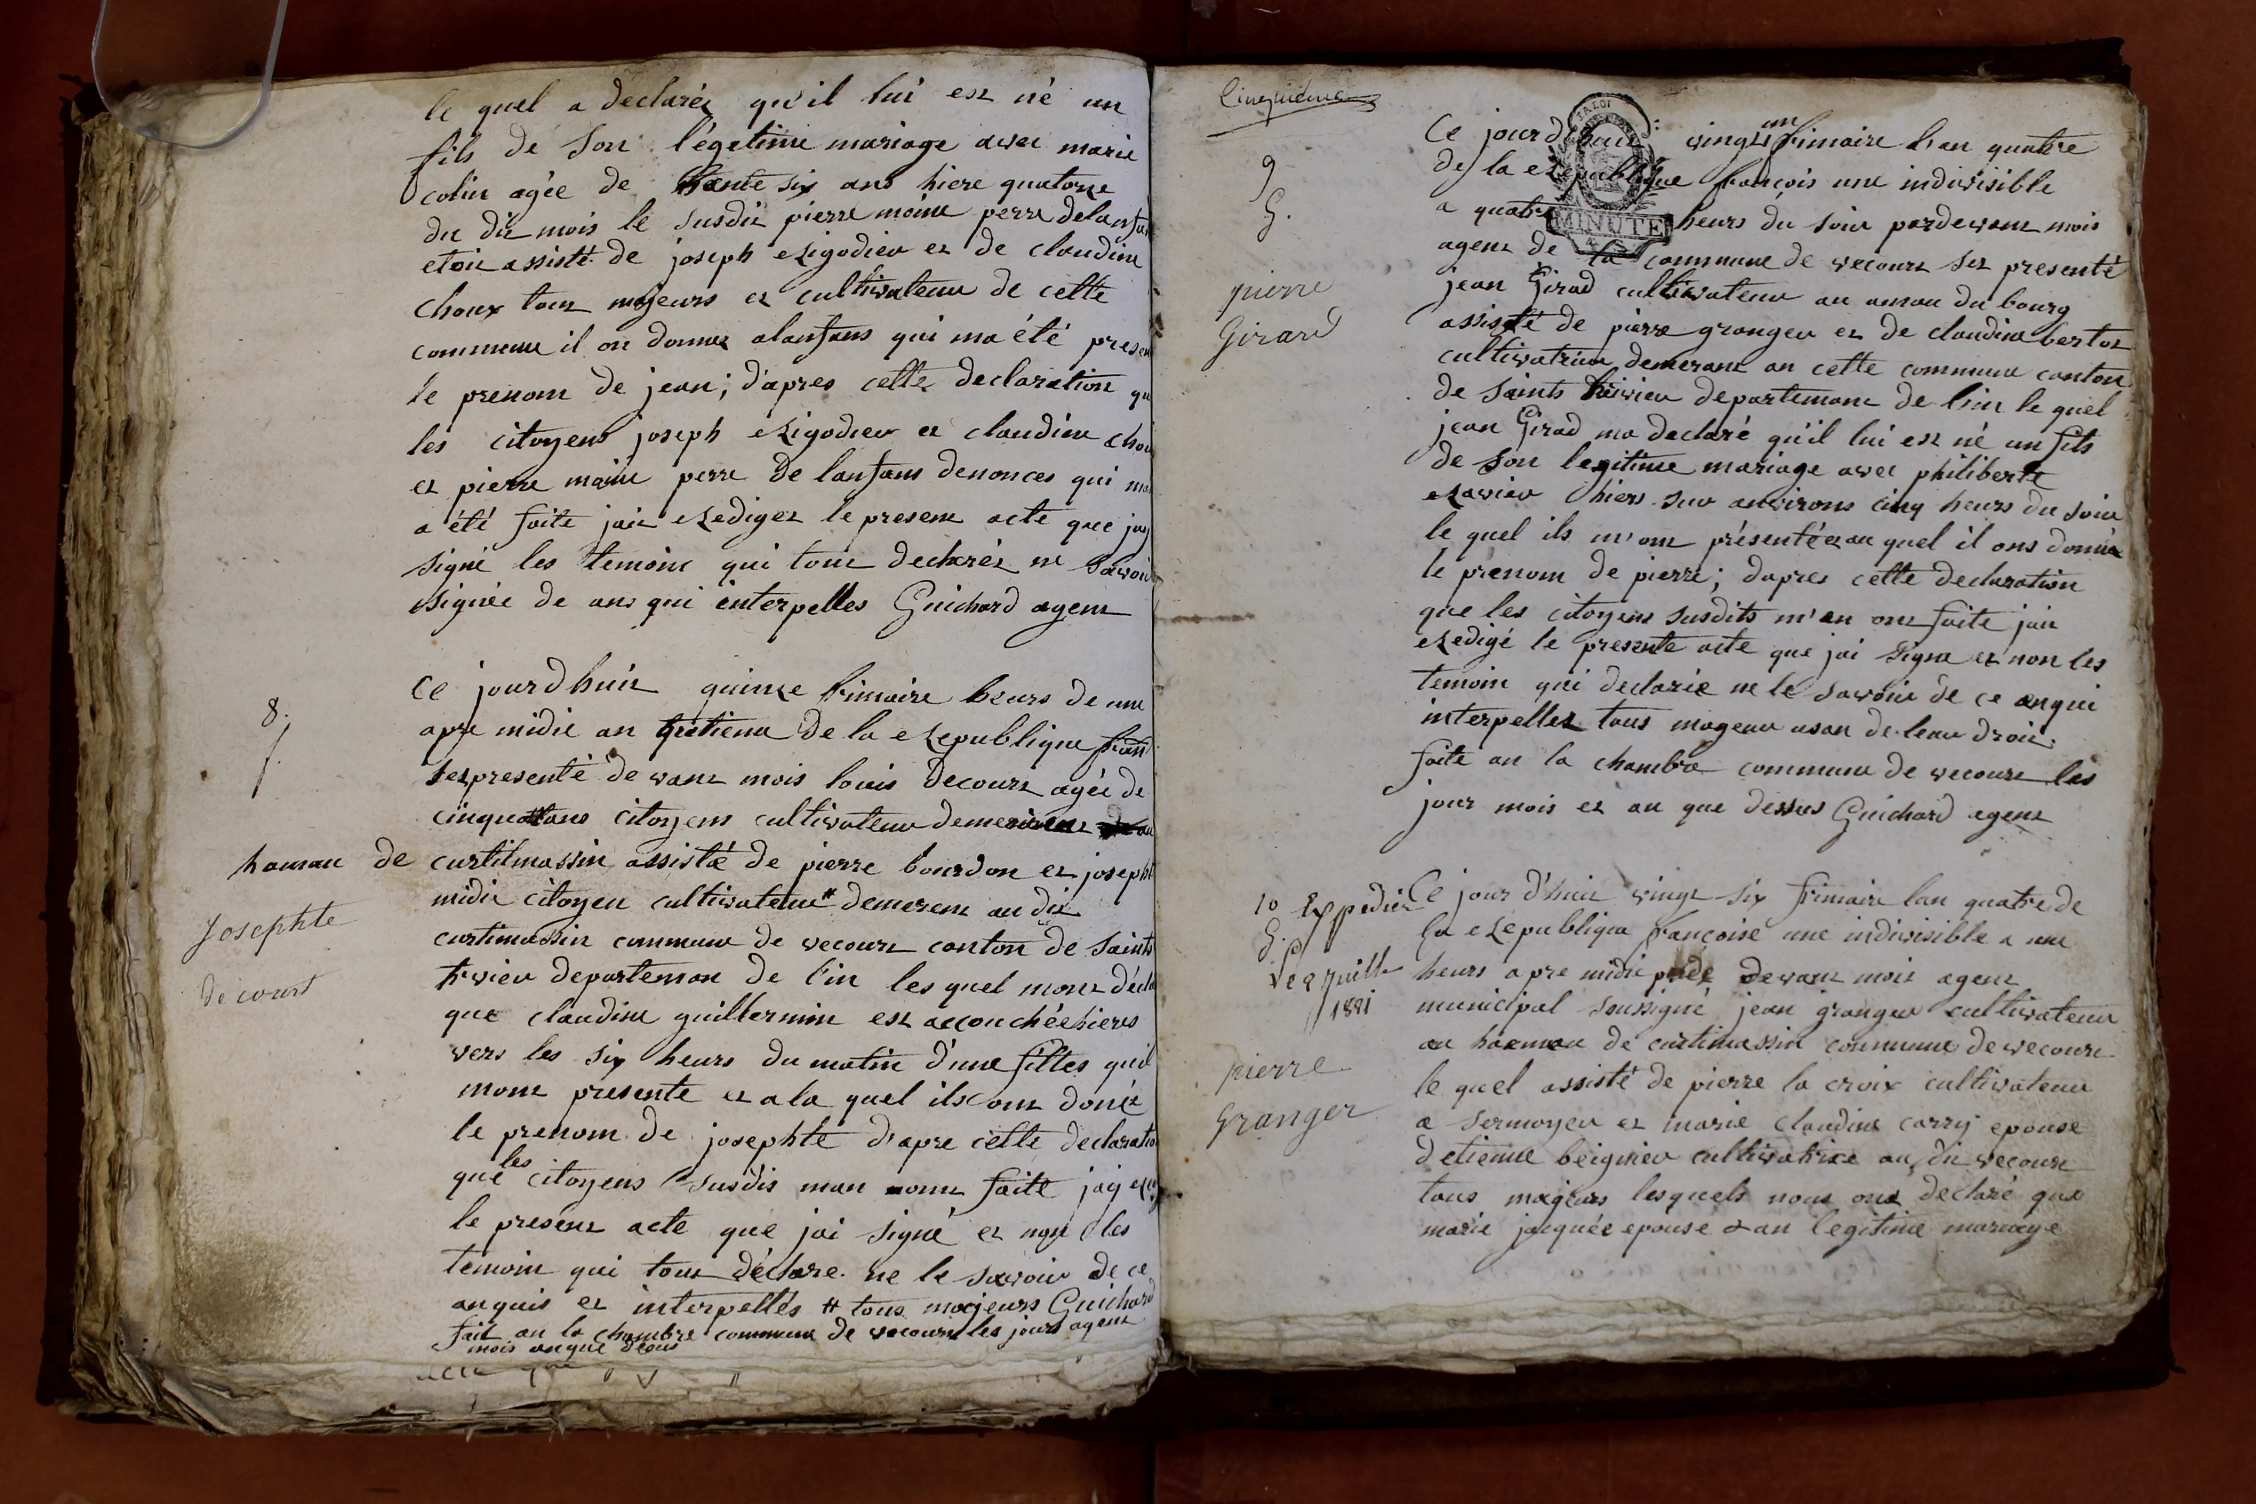 le quel a declarér qu'il lui est né un
fils de son légetime mariage avec marie
colin agée de trante six ans hiere quatorze
du dit mois le susdit pierre moine perre delanfan
etoit assisté de joseph Rigodieu et de claudine
choux tous majeurs et cultivateur de cette
commeune il on donner alanfans qui ma été presen
le prenom de jean; d'apres cette declaration que
les citoyens joseph Rigodier et claudine chou
et pierre moine perre de lanfans denonces qui ma
a été faite jait Rediger le present acte que jay
signé les temoins qui tous declarér ne savoir
signée de ans qui interpelles Guichard agent
8.
f.
Josephte
decourt
Ce jourdhuit quinze frimaire heurs de une
apre midie an katriema de la Republique fran
set presenté devant mois louis decourt agée de
cinquattans citoyens cultivateur demeurent au
hamau de curtilmassin assisté de pierre bourdon et joseph
midie citoyen cultivateur # demerent au dit
curtimassin commune de vecourt canton de saints
trivier departeman de l'in les quel mont décla
que claudine guillermin est accouchée hieres
vers les six heurs du matin d'une filles quil
mont presente et a la quel ils ont donér
le prenom de josephte d'apre cette declaratio
que les citoyens susdis man nont faite jay
le present acte que jai signé et non les
temoin qui tous déclare ne le savoir de ce
anquis et interpellés # tous majeurs Guichard
fait an la chambre commune de vecourt les jours agent
mois anque deсus
Cinquième
9
G.
pierre
Girard
MINUTE
Ce jourdhuit vingt un frimaire l'an quatre
de la Republique françois une indivisible
a quatre heurs du soir pardevant mois
agent de la commune de vecourt set presenté
jean Girad cultivateur au amau du bourg
assisté de pierre granger et de claudine bertot
cultivatrice demerant an cette commune canton
de saints trivier departemant de lin le quel
jean Girad ma declaré qu'il lui est né un fils
de son legitime mariage avec philiberte
Ravier hiers sur anvirons cinq heurs du soir
le quel ils m'ont présenté et au quel il ons donné
le prénom de pierre; dapres cette declaration
que les citoyens susdits m'en ont faite jait
Redigé le presente acte que jai signa et non les
temoin qui declarie ne le savoir de ce anqui
interpeller tous mageur usan de leur droit.
faite an la chambre commune de vecourt les
jour mois et an que dessus Guichard agent
10 Expedier
G.
Le 2 juillet
1881
pierre
Granger
Ce jour d'huit vingt six frimaire lan quatre de
La Republique françoise une indivisible a une
heurs apre midi devant mois agent
municipal soussigné jean granger cultivateur
au hameau de curtimassin commune de vecourt
le quel assisté de pierre la croix cultivateur
a sermoyer et marie claudine carry epouse
d'etienne beignier cultivatrice au dit vecourt
tous majeurs lesquels nous ont declaré que
marie jacquée epouse an legitime mariage